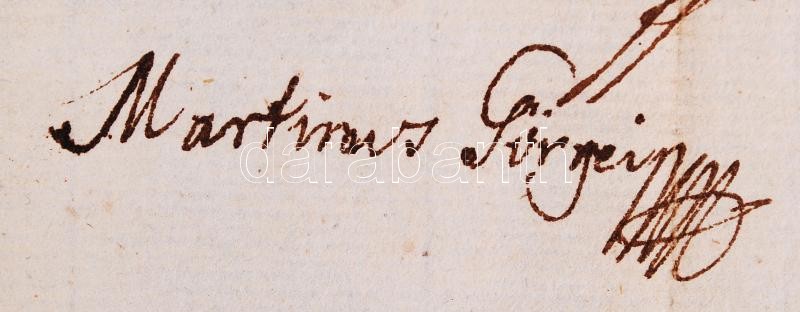 Martinus Görgei
darabanth